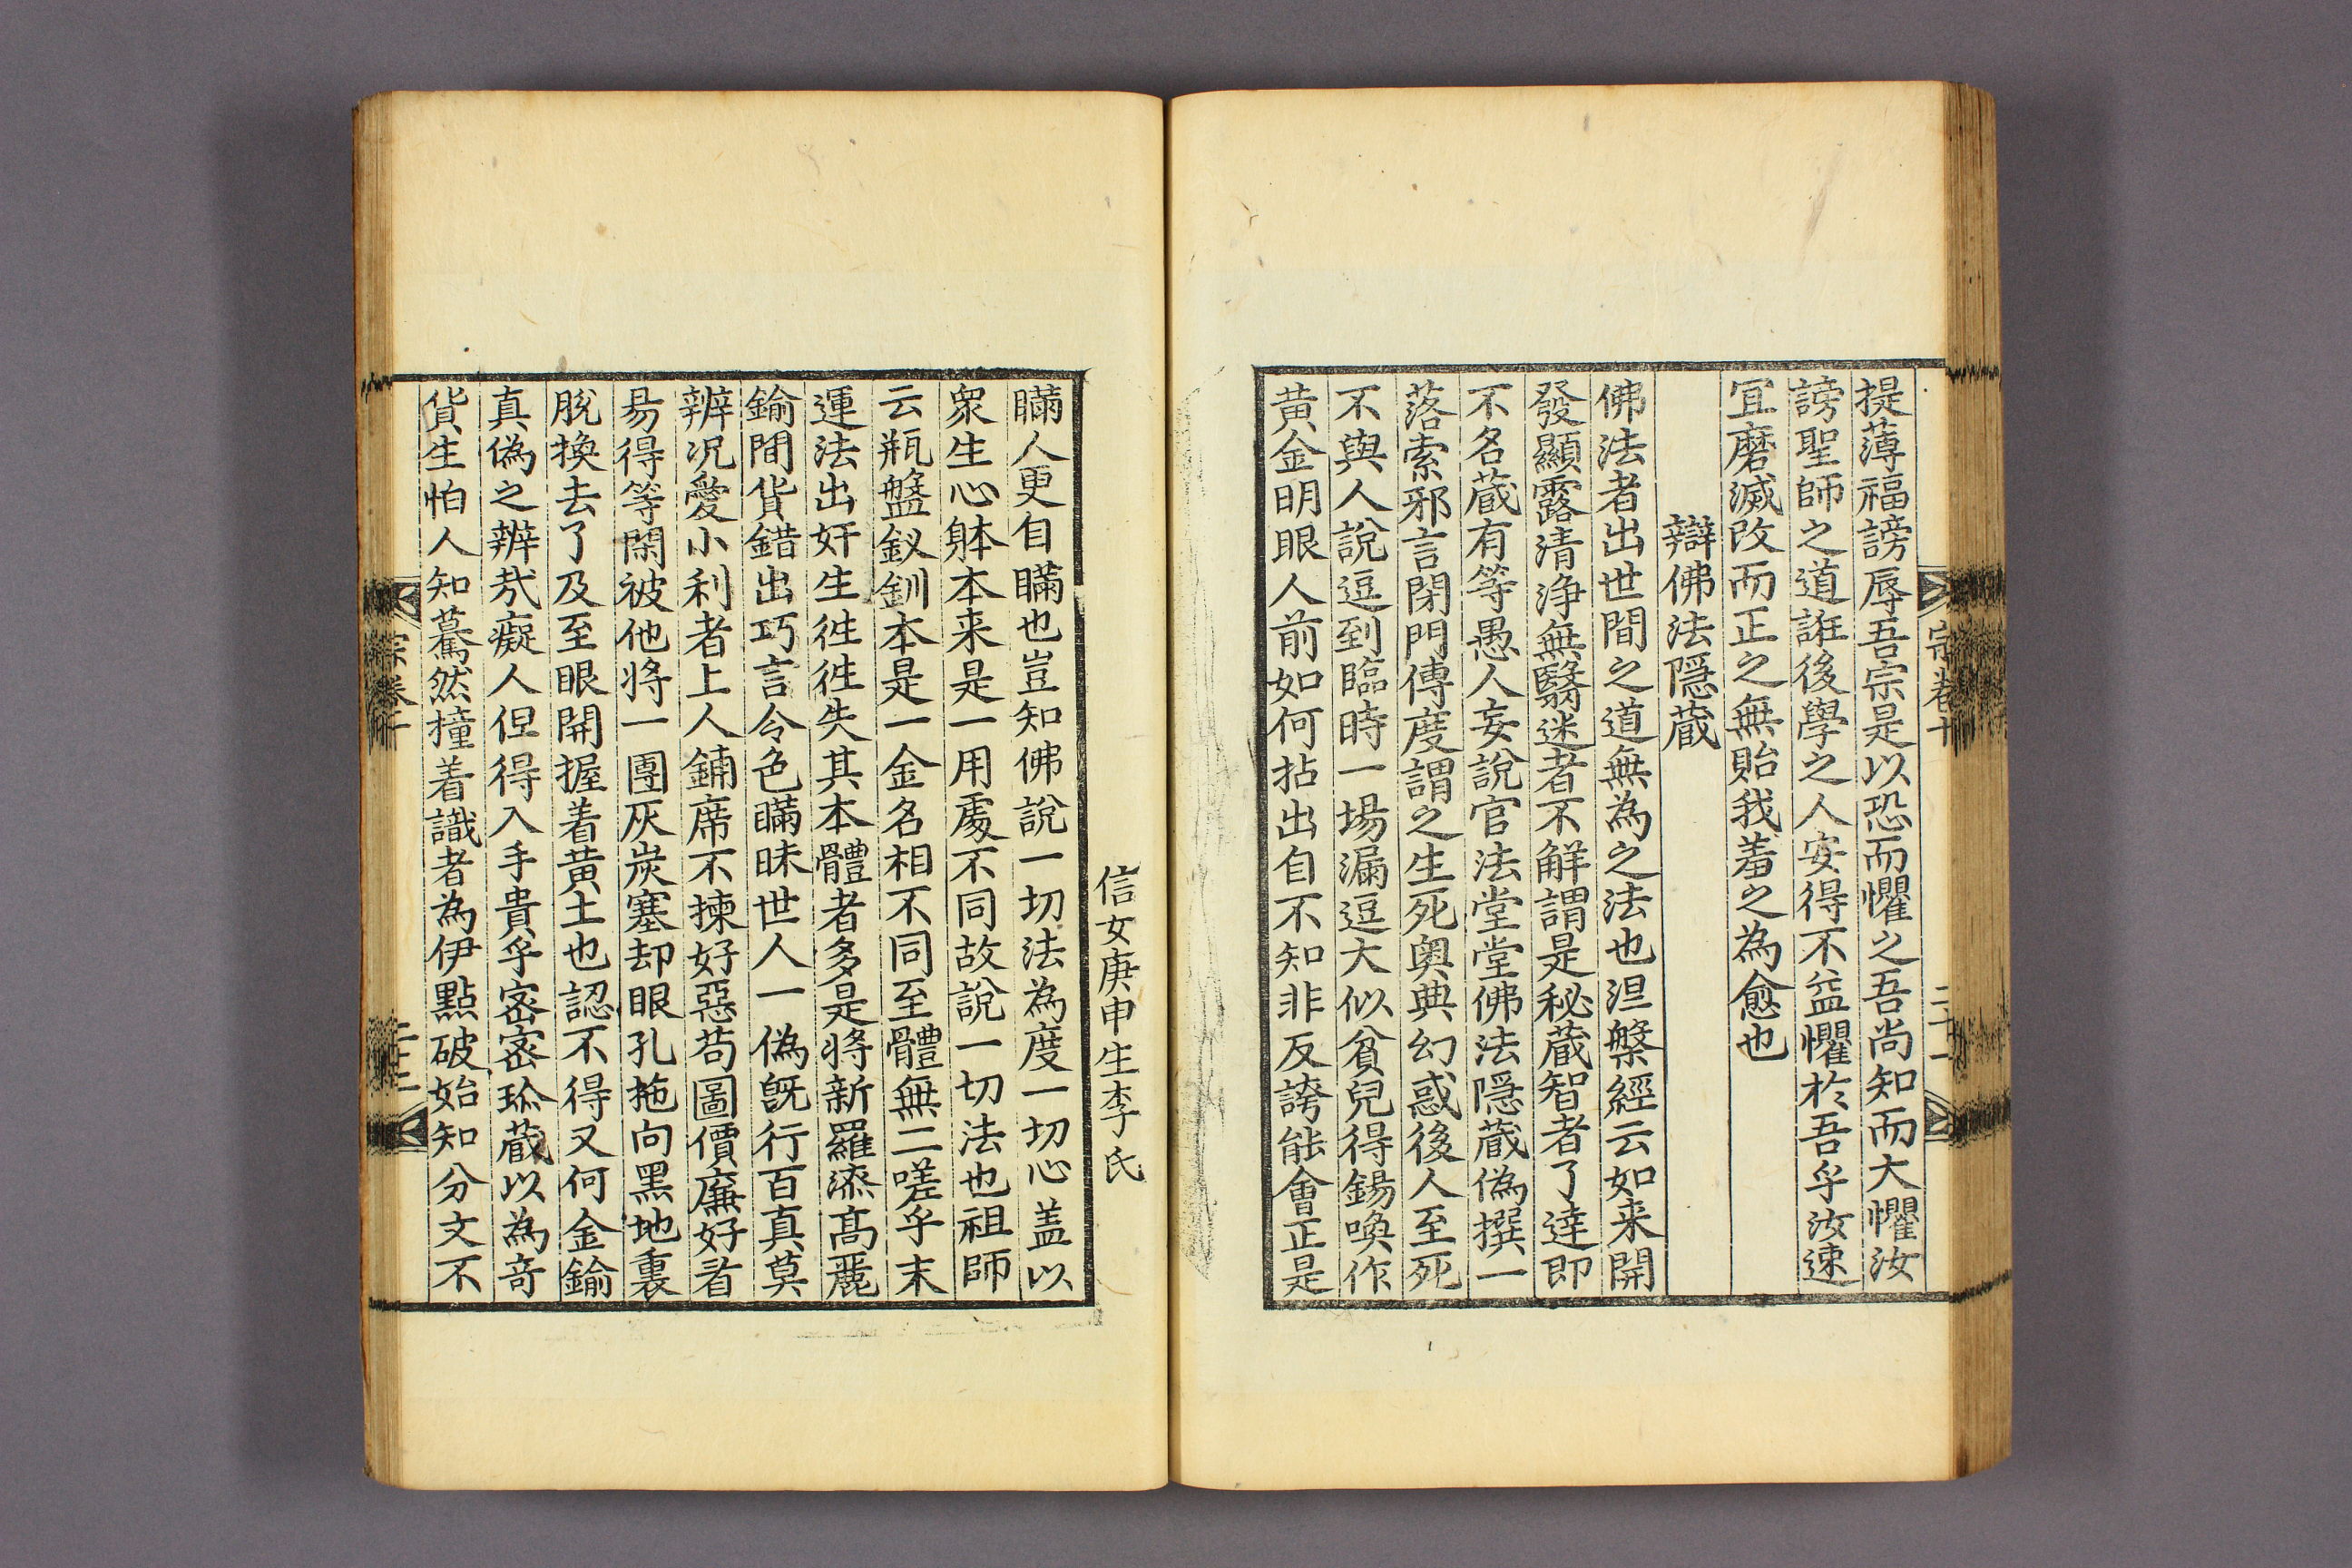 宗卷十
二十一
提薄福謗辱吾宗是以恐而懼之吾尚知而大懼汝
謗聖師之道誑後學之人安得不益懼於吾乎汝速
冝磨滅改而正之無貽我羞之為愈也
辯佛法隱蔵
佛法者出世間之道無為之法也涅槃經云如来開
發顯露清浄無翳迷者不解謂是秘蔵智者了達即
不名蔵有等愚人妄說官法堂堂佛法隱蔵偽撰一
落索邪言閉門傳度謂之生死奥典幻惑後人至死
不與人說逗到臨時一場漏逗大似貧兒得錫喚作
黄金明眼人前如何拈出自不知非反誇能會正是
信女庚申生李氏
瞞人更自瞞也豈知佛說一切法為度一切心盖以
衆生心躰本来是一用處不同故說一切法也祖師
云瓶盤釵釧本是一金名相不同至體無二嗟乎末
運法出奸生徃徃失其本體者多是將新羅漆髙麗
鍮間貨錯出巧言令色瞞昧世人一偽旣行百真莫
辨况愛小利者上人鋪席不揀好惡茍圖價廉好看
易得等閑被他將一團灰炭塞却眼孔拖向黑地裏
脫換去了及至眼開握着黄土也認不得又何金鍮
真偽之辨㢤癡人但得入手貴乎宻宻珎蔵以為竒
貨生怕人知驀然撞着識者為伊點破始知分文不
宗卷十